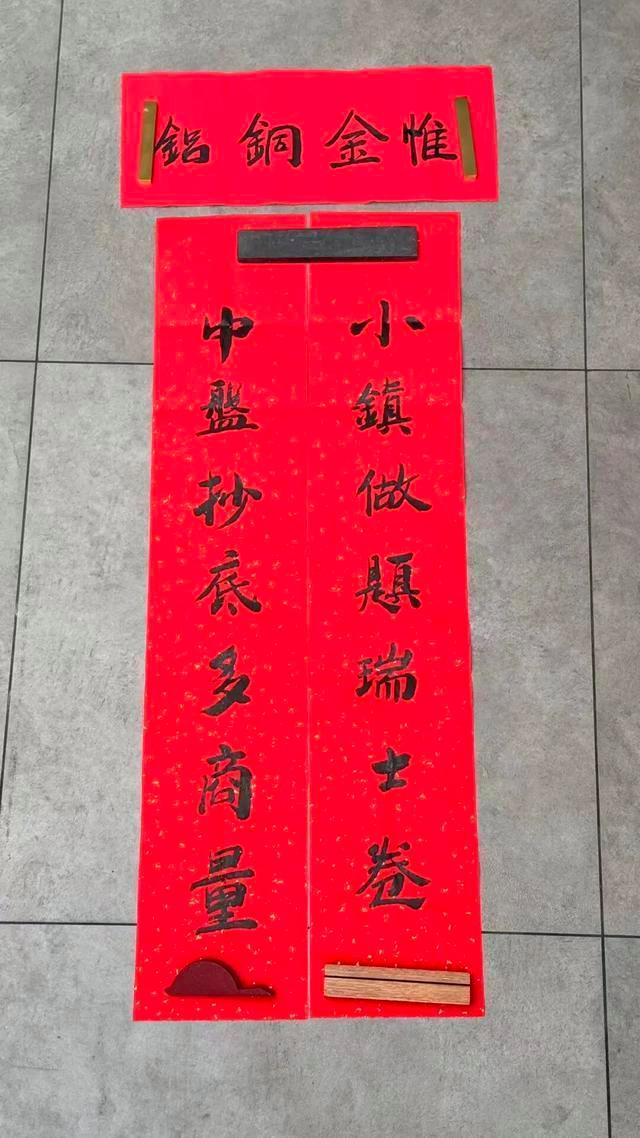 惟金銅鋁
小鎮做題瑞士卷
中盤抄底多商量